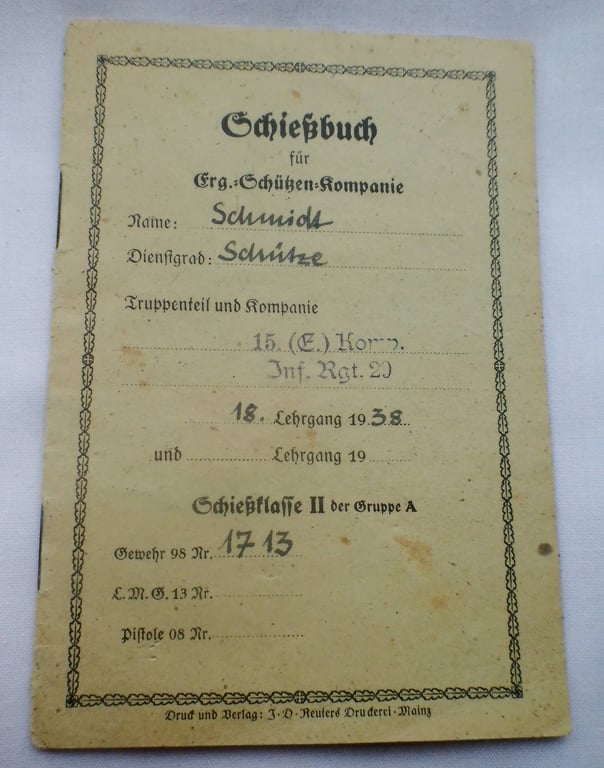 Schießbuch
für
Erg.-Schützen-Kompanie
Name: Schmidt
Dienstgrad: Schütze
Truppenteil und Kompanie
15. (E.) Komp.
Inf. Rgt. 20
18. Lehrgang 1938
und Lehrgang 19
Schießklasse II der Gruppe A
Gewehr 98 Nr. 1713
L.M.G. 13 Nr.
Pistole 08 Nr.
Druck und Verlag: J. D. Reuters Druckerei · Mainz